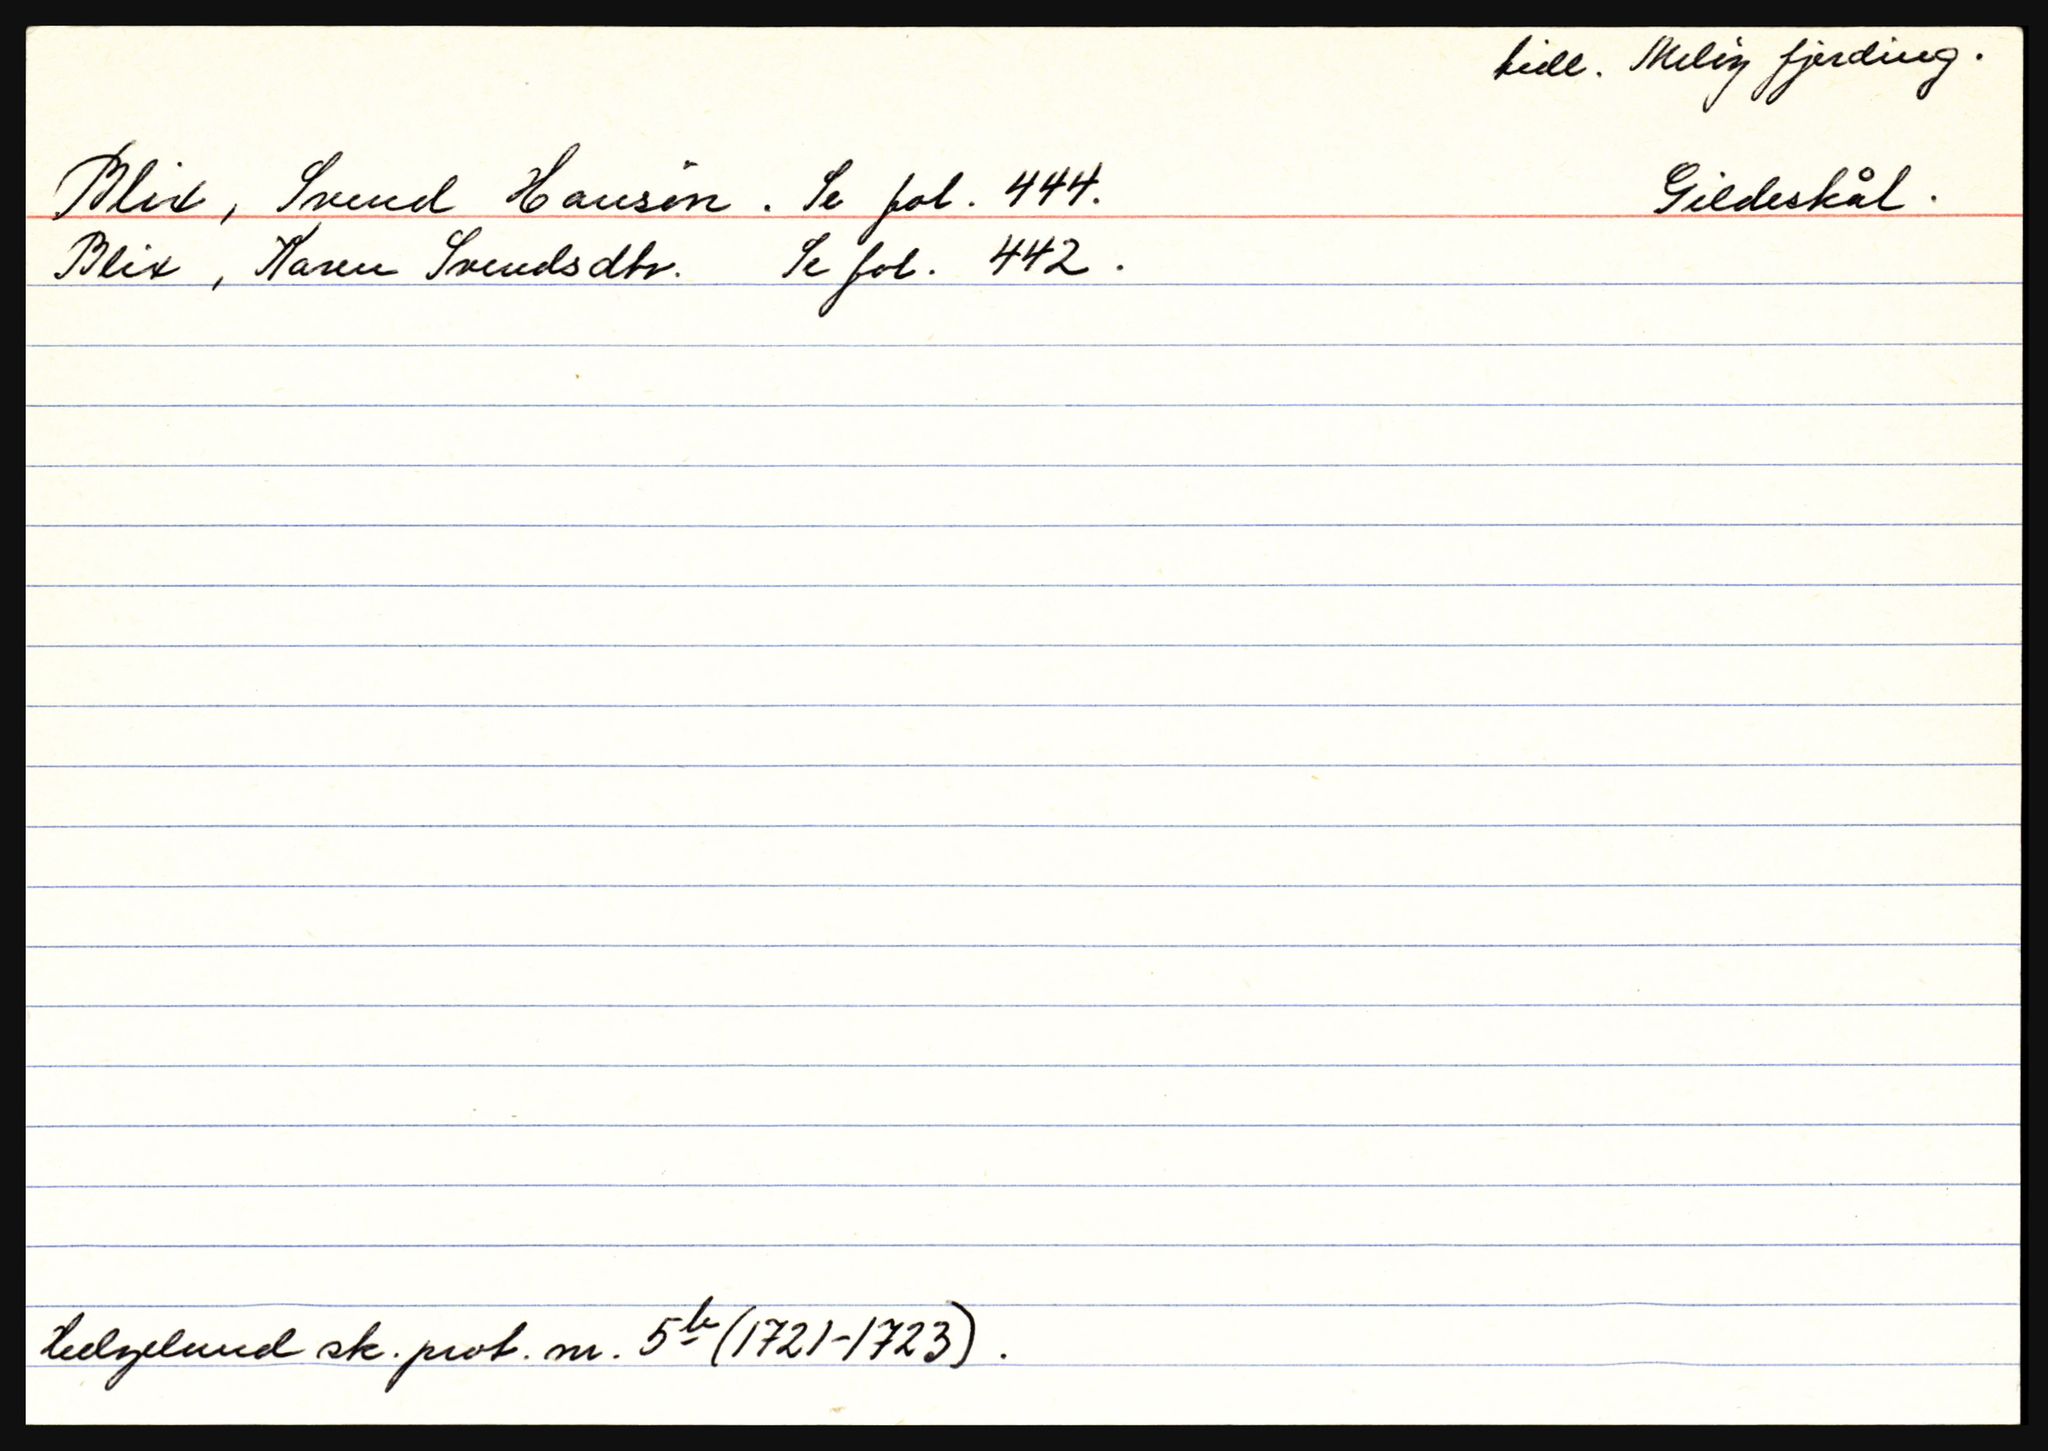 tidl. Meløy fjerding.
Blix, Svend Hansen. Se fol. 444. Gildeskål.
Blix, Karen Svendsdtr. Se fol. 442.
Helgeland sk. prot. nr. 5b (1721-1723).